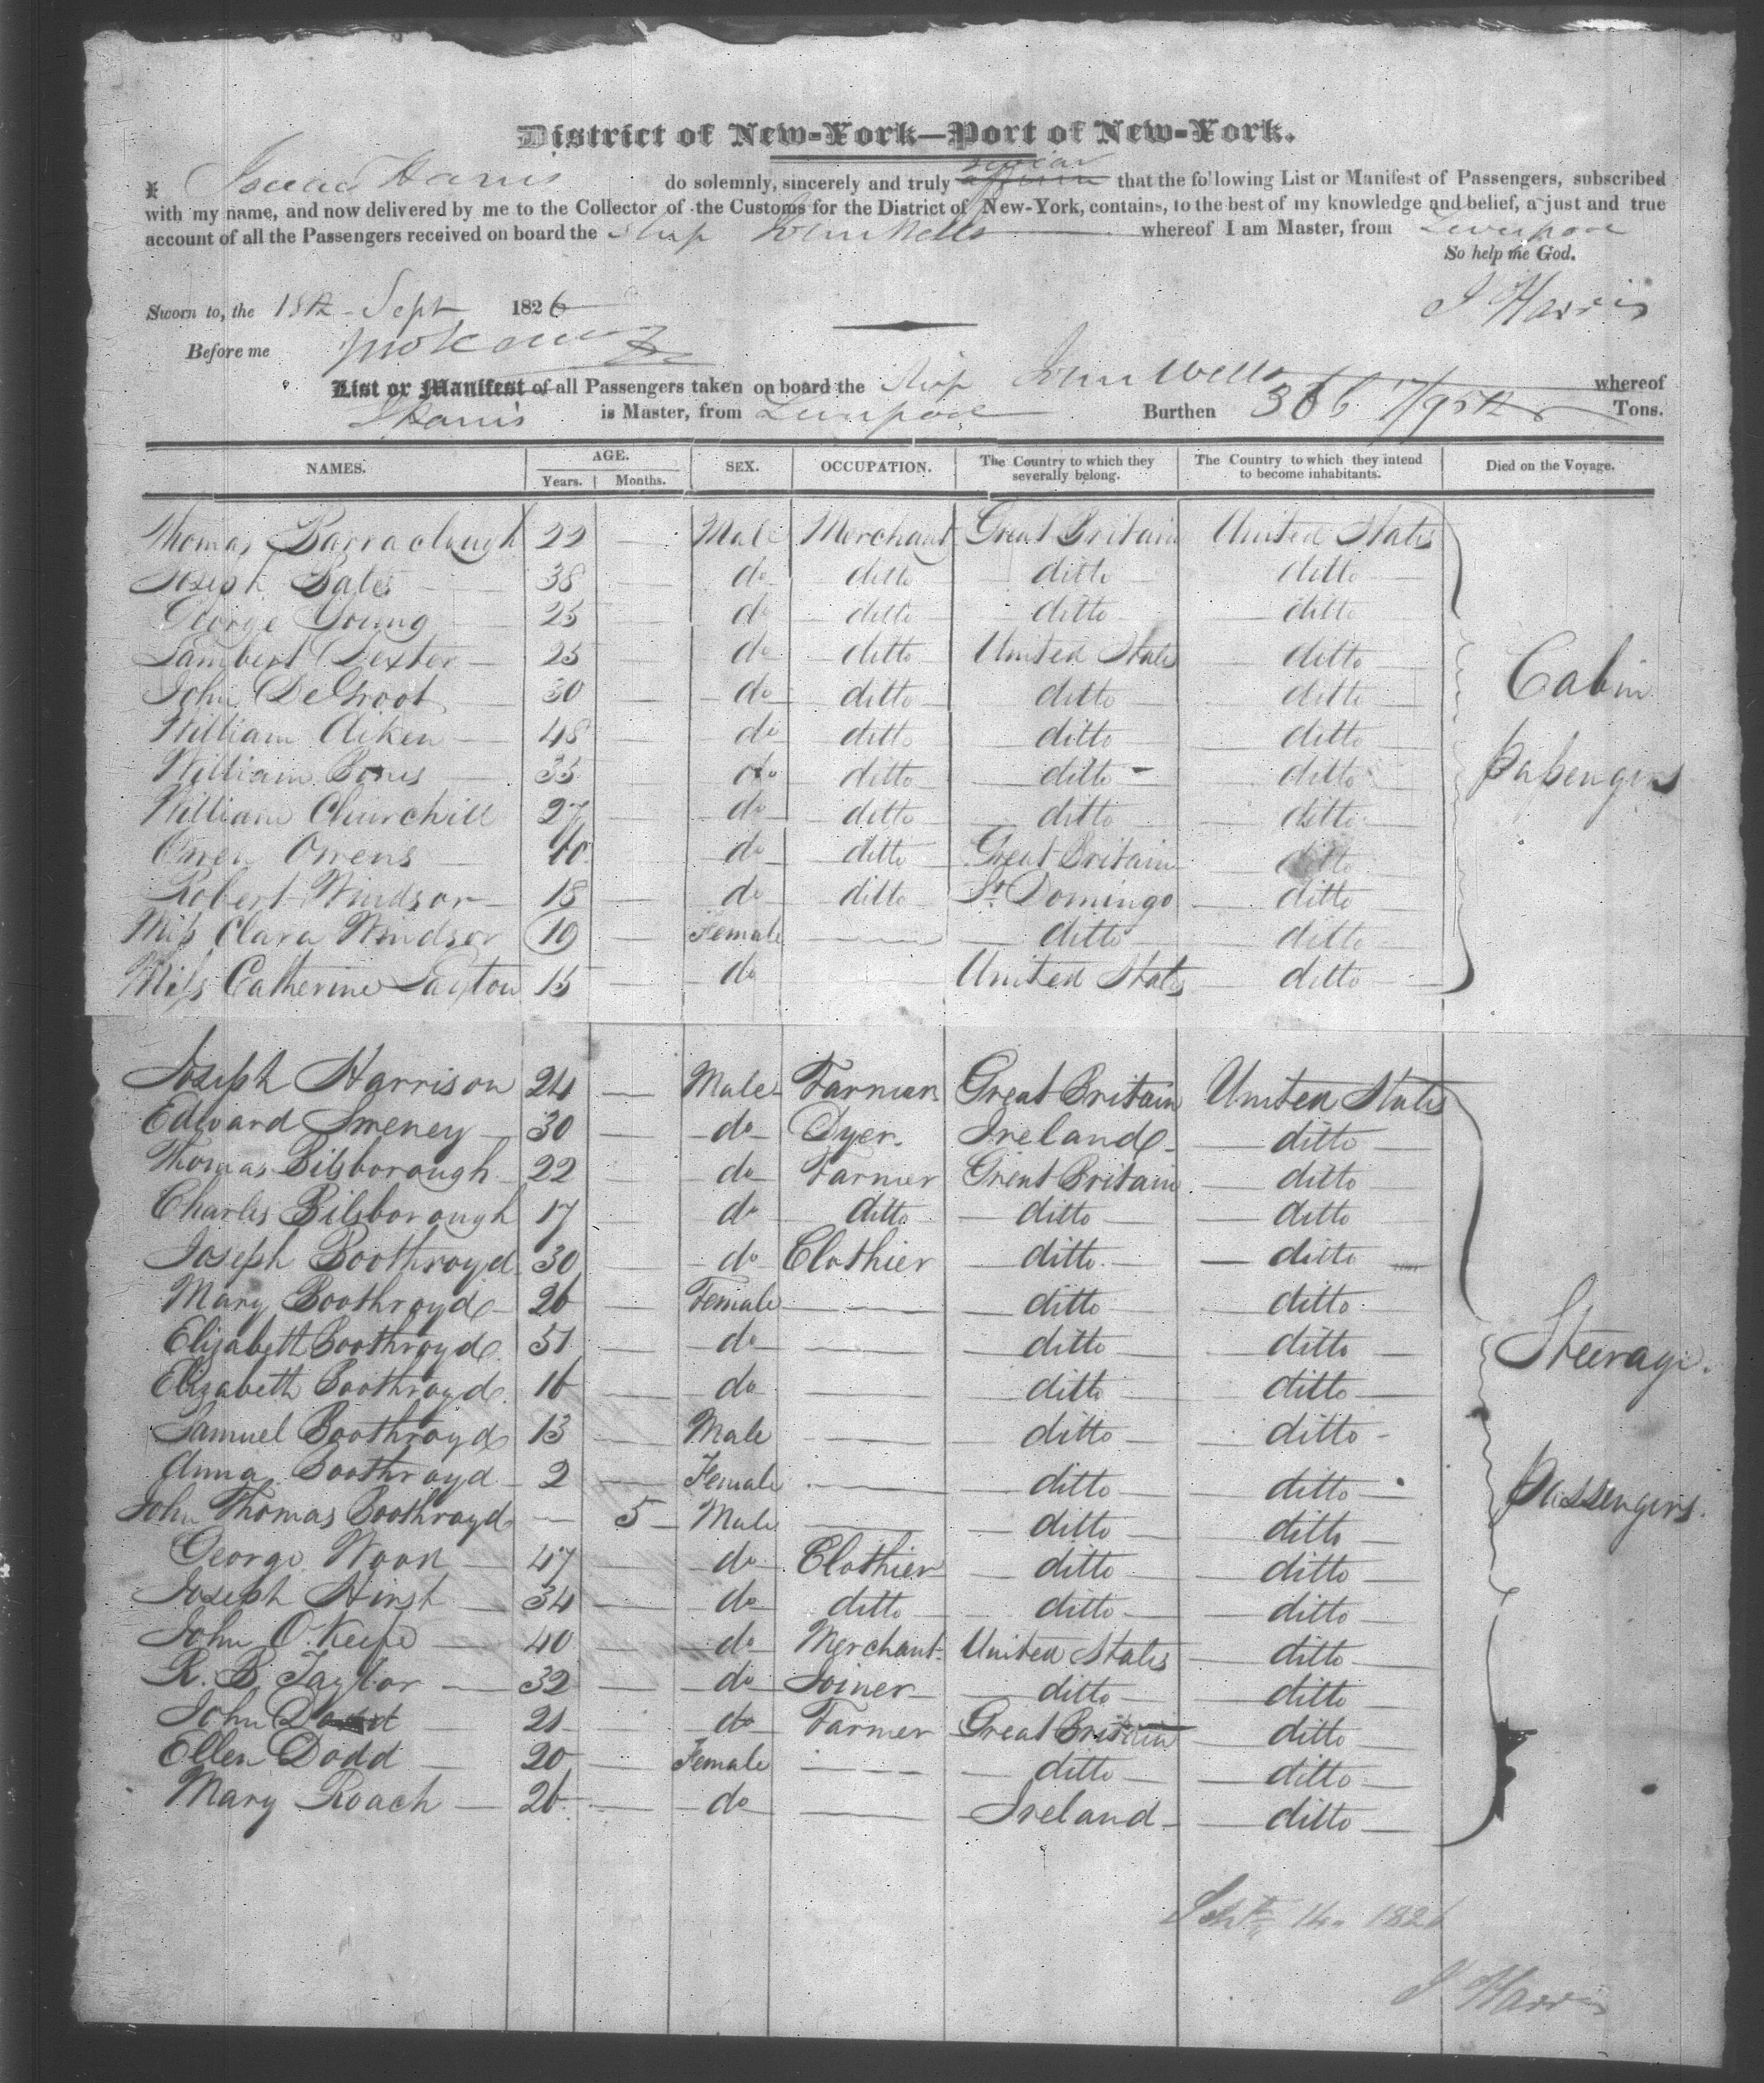 District of New-York—Port of New-York.
I Isaac Harris do solemnly, sincerely and truly swear affirm that the following List or Manifest of Passengers, subscribed
with my name, and now delivered by me to the Collector of the Customs for the District of New-York, contains, to the best of my knowledge and belief, a just and true
account of all the Passengers received on board the Ship John Wells whereof I am Master, from Liverpool
So help me God.
Sworn to, the 18th Sept 1826 I Harris
Before me
List or Manifest of all Passengers taken on board the Ship John Wells whereof
I Harris is Master, from Liverpool Burthen 366 17/95th Tons.
NAMES. AGE. Years. Months. SEX. OCCUPATION. The Country to which they severally belong. The Country to which they intend to become inhabitants. Died on the Voyage.
Thomas Barraclough 22 — Male Merchant Great Britain United States
Joseph Bates 38 — do ditto ditto ditto
George Young 25 — do ditto ditto ditto
Lambert Dexter 25 — do ditto United States ditto
John DeGroot 30 — do ditto ditto ditto Cabin
William Aiken 48 — do ditto ditto ditto
William Bones 35 — do ditto ditto ditto Passengers
William Churchill 27 — do ditto ditto ditto
Owen Owens 40 — do ditto Great Britain ditto
Robert Windsor 18 — do ditto St Domingo ditto
Miss Clara Windsor 19 — Female — ditto ditto
Miss Catherine Saxton 15 — do United States ditto
Joseph Harrison 24 — Male Farmer Great Britain United States
Edward Smeney 30 — do Dyer Ireland ditto
Thomas Bilsborough 22 — do Farmer Great Britain ditto
Charles Bilsborough 17 — do ditto ditto ditto
Joseph Boothroyd 30 — do Clothier ditto ditto
Mary Boothroyd 26 — Female — ditto ditto
Elizabeth Boothroyd 51 — do — ditto ditto Steerage
Elizabeth Boothroyd 16 — do — ditto ditto
Samuel Boothroyd 13 — Male — ditto ditto
Anna Boothroyd 2 — Female — ditto ditto Passengers.
John Thomas Boothroyd — 5 Male — ditto ditto
George Wood 47 — do Clothier ditto ditto
Joseph Hirst 34 — do ditto ditto ditto
John O.Keefe 40 — do Merchant United States ditto
R. B. Taylor 32 — do Joiner ditto ditto
John Dodd 21 — do Farmer Great Britain ditto
Ellen Dodd 20 — Female — ditto ditto
Mary Roach 26 — do — Ireland ditto
Septr 14. 1826
I Harris